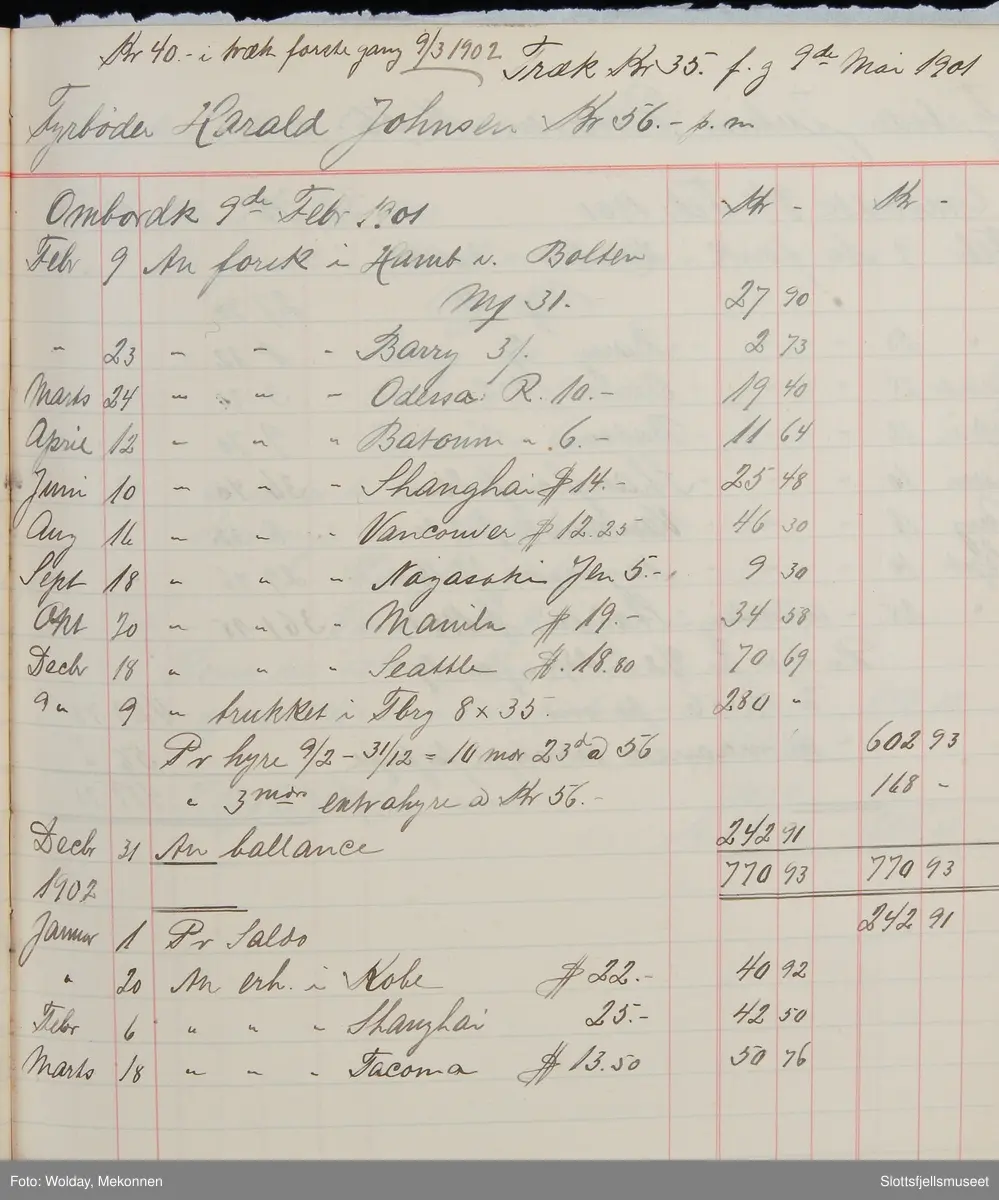 Kr 40.- i træk første gang 9/3 1902
Træk Kr 35. f. g 9de Mai 1901
Fyrbøder Harald Johnsen Kr 56.- p. m
Ombordk 9de Febr 1901 Kr - Kr -
Febr 9 An forsk i Hamb v. Bolten
Mf 31. 27 90
" 23 " " " Barry 3/. 2 73
Marts 24 " " " Odessa R. 10.- 19 40
April 12 " " " Batoum " 6.- 11 64
Juni 10 " " " Shanghai $ 14.- 25 48
Aug 16 " " " Vancouver $ 12.25 46 30
Sept 18 " " " Nagasaki Jen 5.- 9 30
Okt 20 " " " Manila $ 19.- 34 58
Decbr 18 " " " Seattle $. 18.80 70 69
9 " 9 " trukket i Tbrg 8 x 35. 280 "
Pr hyre 9/2 - 31/12 = 10 mdr 23d a 56 602 93
" 3 mdrs extrahyre a Kr 56.- 168 -
Decbr 31 An ballance 242 91
770 93 770 93
1902
Januar 1 Pr Saldo 242 91
" 20 An erh. i Kobe $ 22.- 40 92
Febr 6 " " " Shanghai 25.- 42 50
Marts 18 " " " Tacoma $ 13.50 50 76
Foto: Wolday, Mekonnen
Slottsfjellsmuseet